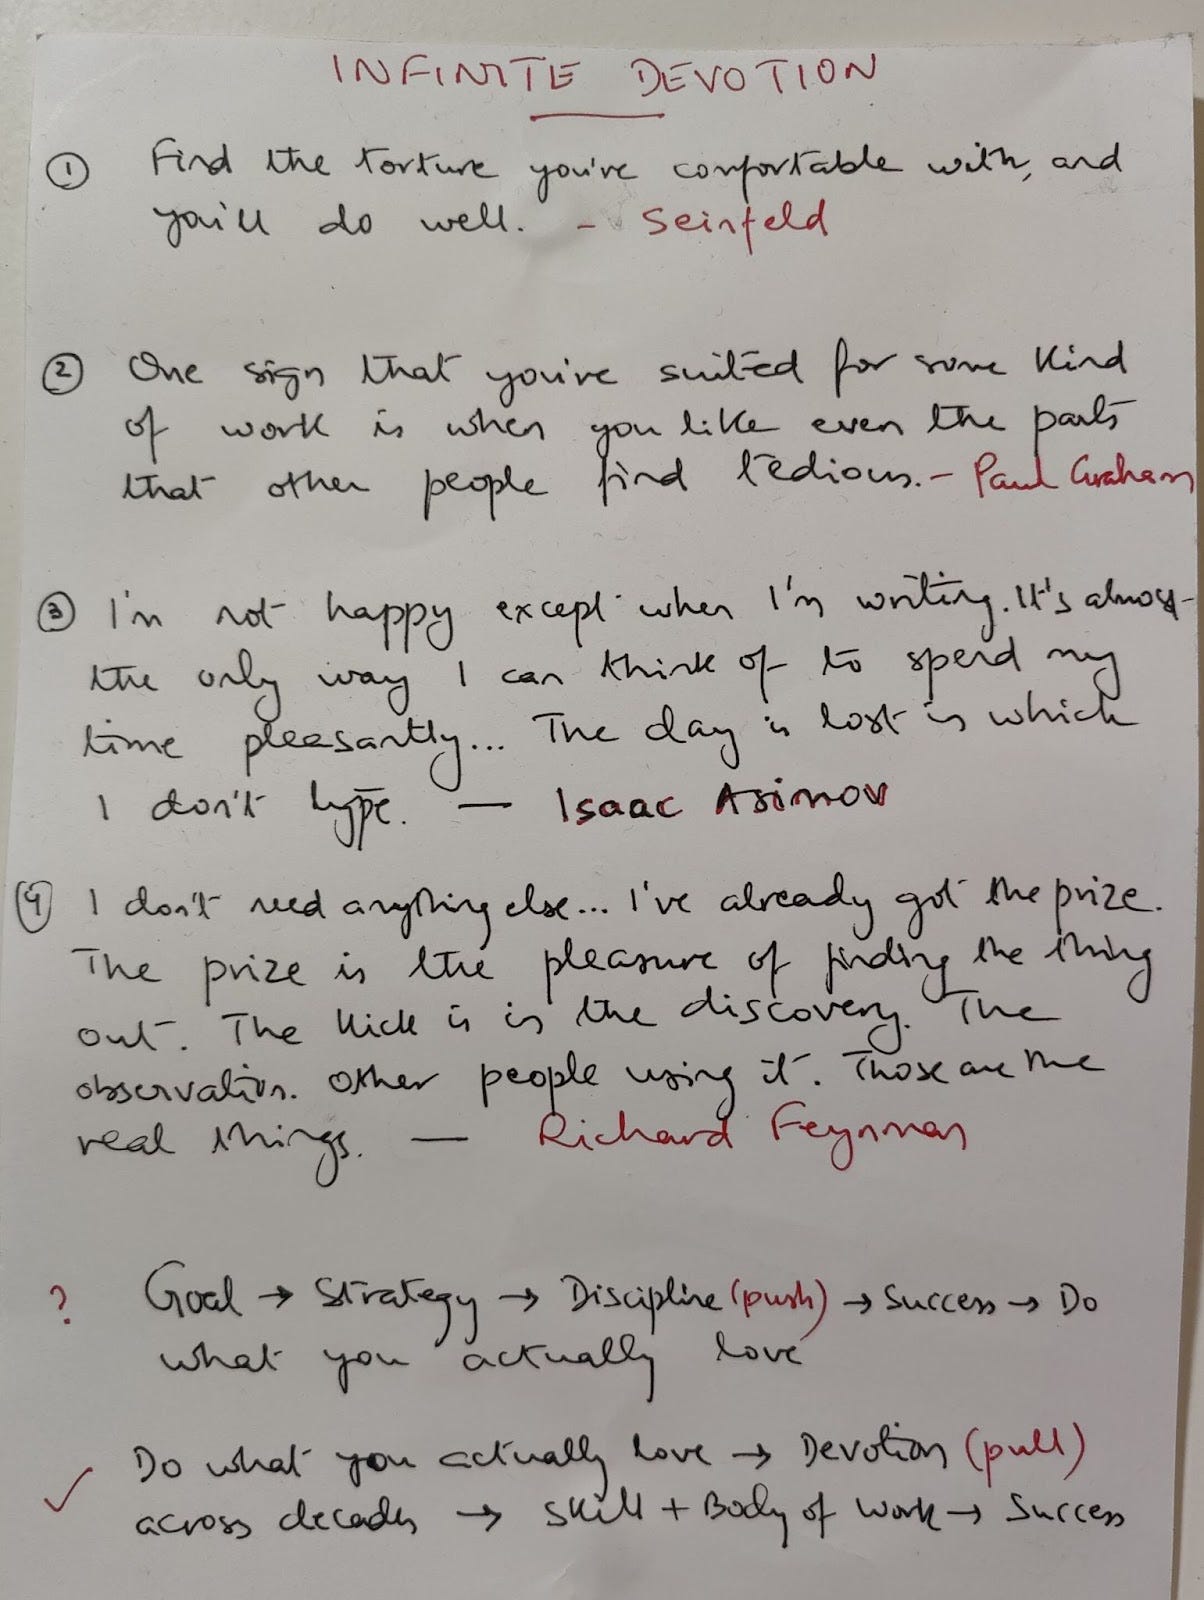 INFINITE DEVOTION
① Find the torture you're comfortable with, and
you'll do well. - Seinfeld
② One sign that you're suited for some kind
of work is when you like even the parts
that other people find tedious. - Paul Graham
③ I'm not happy except when I'm writing. It's almost
the only way I can think of to spend my
time pleasantly... The day is lost in which
I don't type. — Isaac Asimov
④ I don't need anything else... I've already got the prize.
The prize is the pleasure of finding the thing
out. The kick is in the discovery. The
observation. Other people using it. Those are the
real things. — Richard Feynman
? Goal → Strategy → Discipline (push) → Success → Do
what you actually love
✓ Do what you actually love → Devotion (pull)
across decades → Skill + Body of work → Success